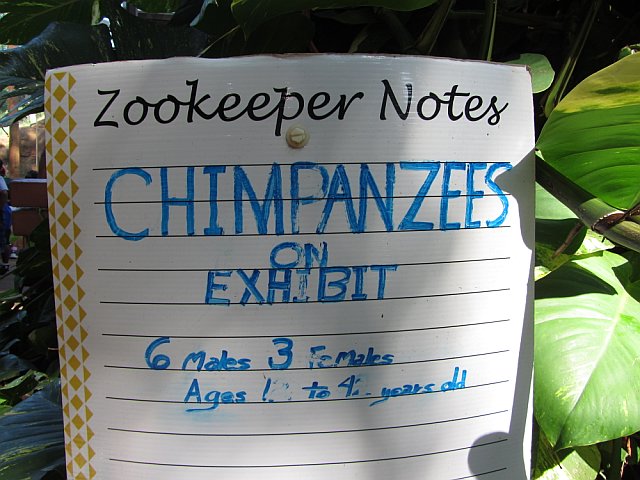 Zookeeper Notes
CHIMPANZEES
ON
EXHIBIT
6 males 3 Females
Ages to years old